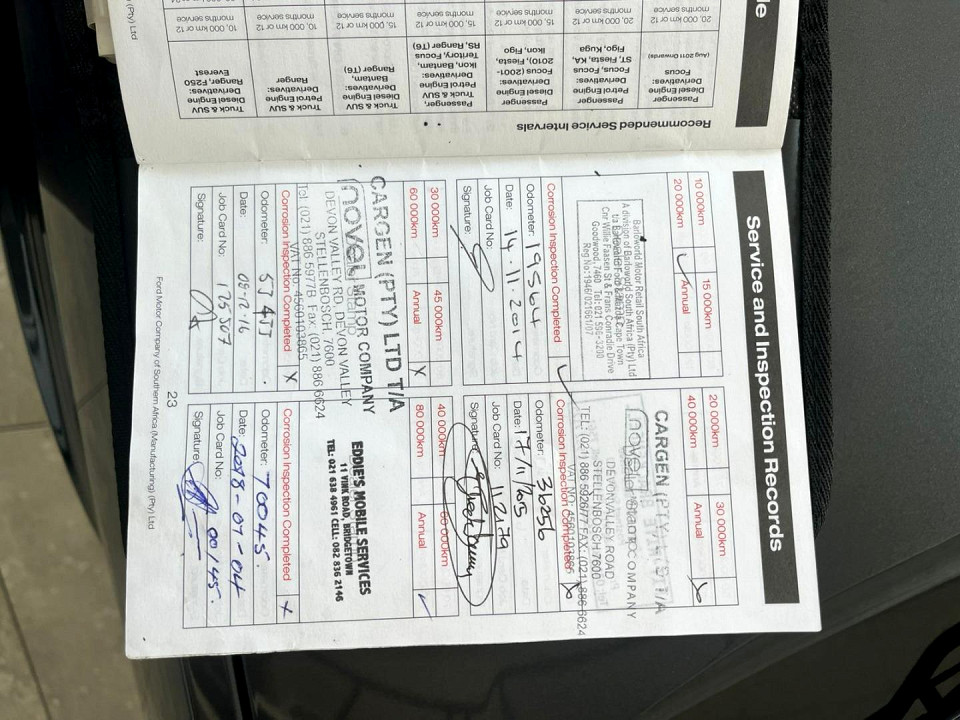 Service and Inspection Records
10 000km
15 000km
20 000km
Annual
Barloworld Motor Retail South Africa
A division of Barloworld South Africa (Pty) Ltd
Cnr Willie Faasen St & Frans Conradie Drive
Goodwood, 7460 Tel: 021 596-3200
Reg No: 1946/021661/07
Corrosion Inspection Completed
Odometer: 19564
Date: 14.11.2014
Job Card No:
Signature:
20 000km
30 000km
40 000km
Annual
CARGEN (PTY) LTD T/A
novel MOTOR COMPANY
DEVON VALLEY ROAD
STELLENBOSCH, 7600
TEL: (021) 886 5926/77 FAX: (021) 886 6624
Corrosion Inspection Completed X
Odometer: 36256
Date: 17/11/2015
Job Card No: 112179
Signature:
30 000km
45 000km
60 000km
Annual X
CARGEN (PTY) LTD T/A
novel MOTOR COMPANY
DEVON VALLEY RD, DEVON VALLEY
STELLENBOSCH, 7600
Tel: (021) 886 5977B Fax: (021) 886 6624
VAT No: 4560103865
Corrosion Inspection Completed X
Odometer:
Date: 08-12-16
Job Card No: 125507
Signature:
40 000km
60 000km
80 000km
Annual
EDDIE'S MOBILE SERVICES
11 VINK ROAD, BRIDGETOWN
TEL: 021 638 4961 CELL: 082 836 2146
Corrosion Inspection Completed X
Odometer: 70045.
Date: 2018-07-04
Job Card No: 00145.
Signature:
23
Ford Motor Company of Southern Africa (Manufacturing) (Pty) Ltd
Recommended Service Intervals
Passenger
Diesel Engine
Derivatives:
Focus
(Aug 2011 Onwards)
20, 000 km or 12
months service
Passenger
Petrol Engine
Derivatives:
Focus, Focus
ST, Fiesta, KA,
Figo, Kuga
20, 000 km or 12
months service
Passenger
Petrol Engine
Derivatives:
Focus (2001-
2010), Fiesta,
Ikon, Figo
15, 000 km or 12
months service
Passenger,
Truck & SUV
Petrol Engine
Derivatives:
Ikon, Bantam,
Territory, Focus
RS, Ranger (T6)
15, 000 km or 12
months service
Truck & SUV
Diesel Engine
Derivatives:
Bantam,
Ranger (T6)
15, 000 km or 12
months service
Truck & SUV
Petrol Engine
Derivatives:
Ranger
10, 000 km or 12
months service
Truck & SUV
Diesel Engine
Derivatives:
Ranger, F250
Everest
10, 000 km or 12
months service
(Pty) Ltd